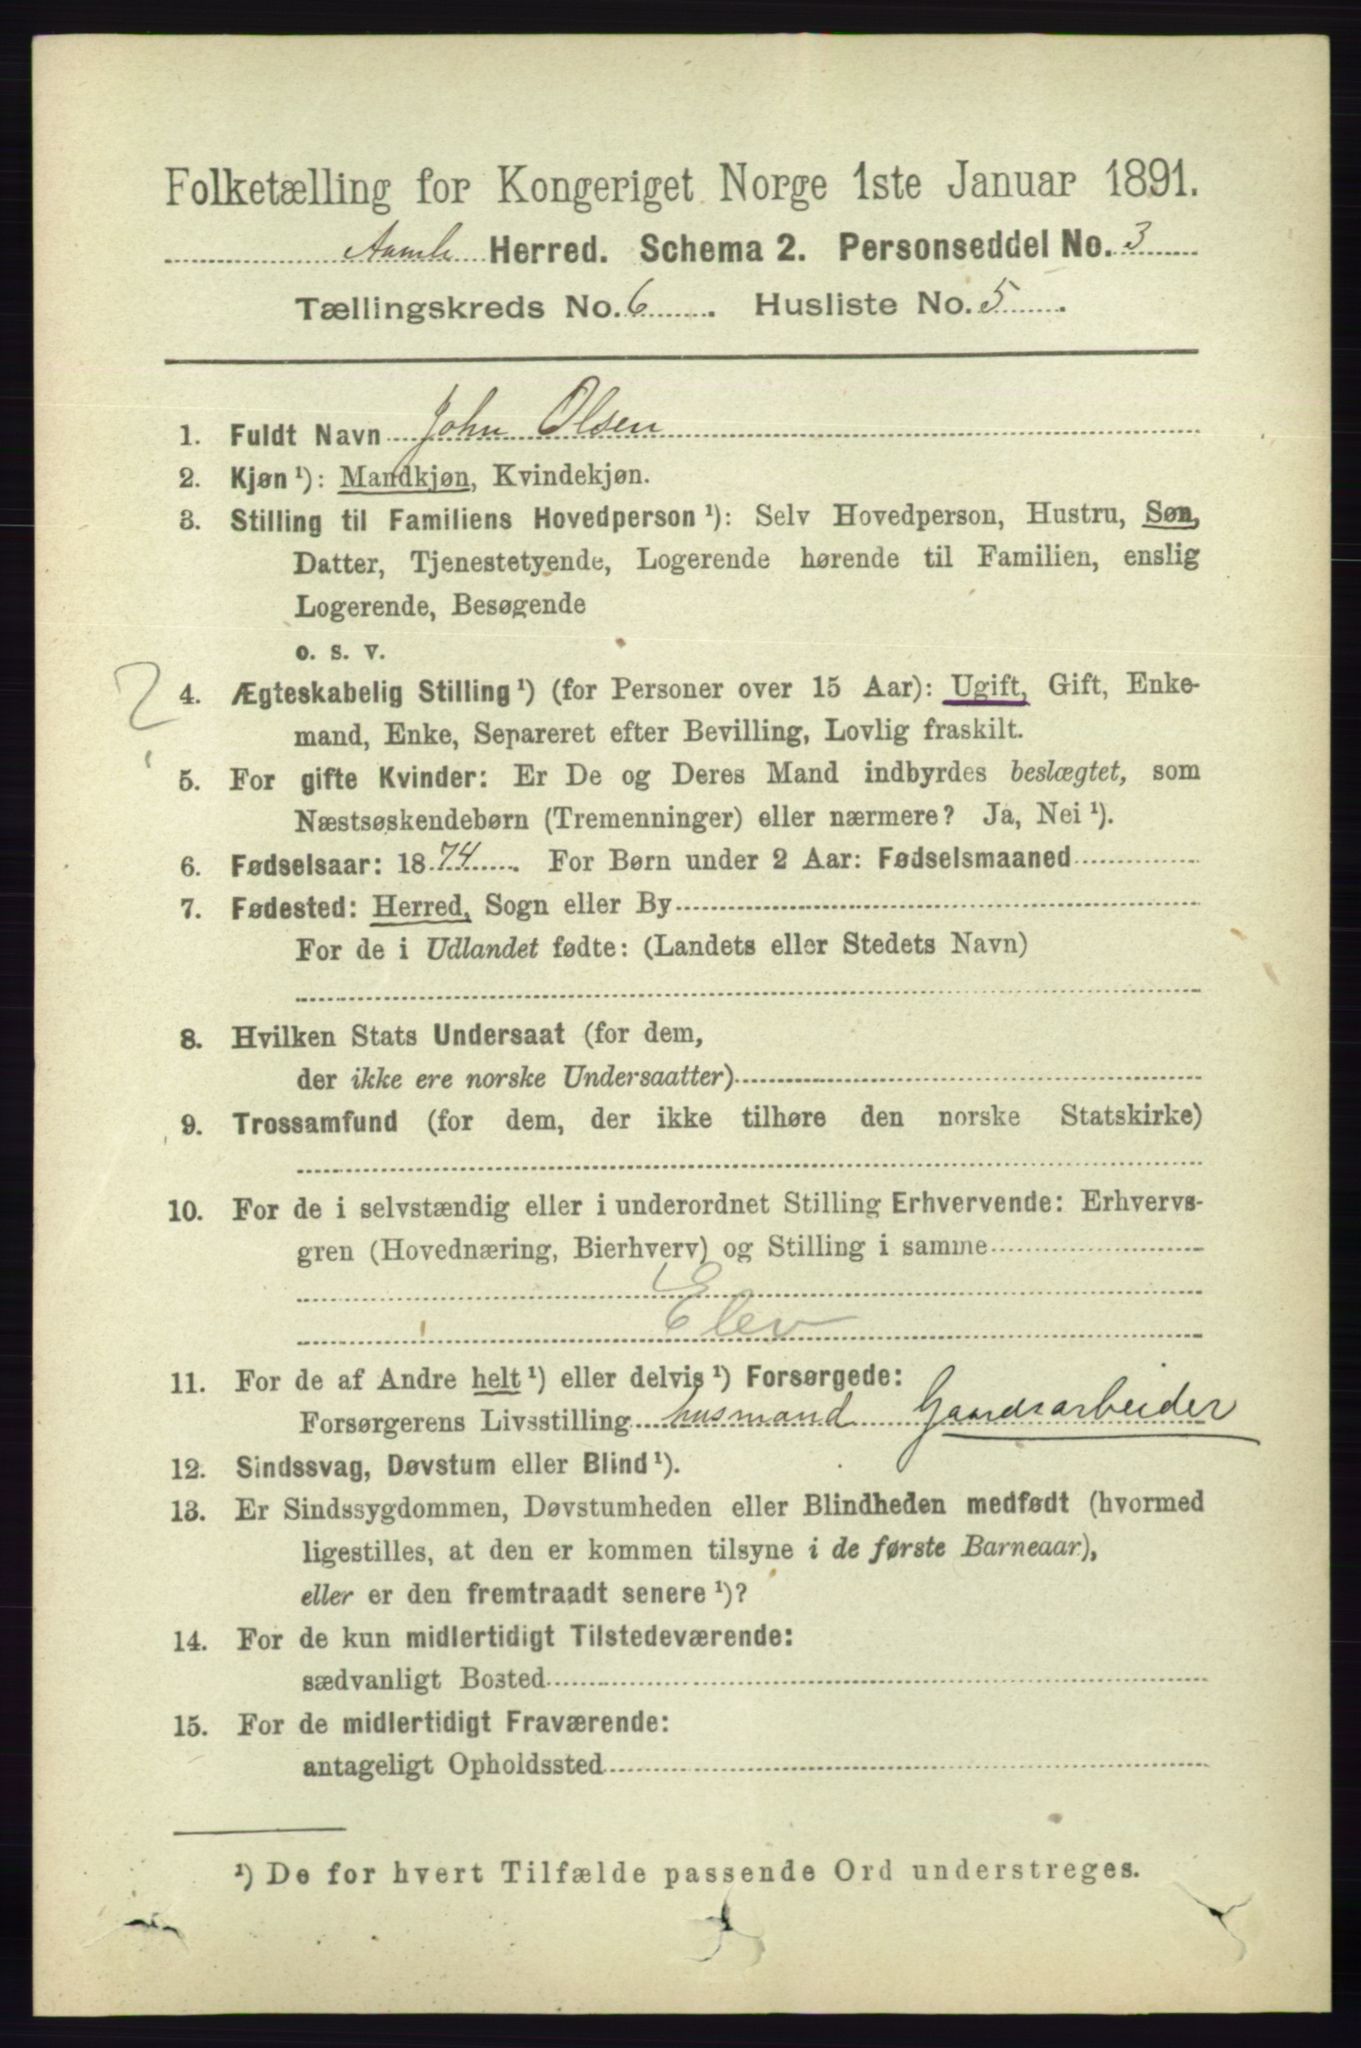 Folketælling for Kongeriget Norge 1ste Januar 1891.
Aamli Herred. Schema 2. Personseddel No. 3
Tællingskreds No. 6. Husliste No. 5.
1. Fuldt Navn John Olsen
2. Kjøn ¹): Mandkjøn, Kvindekjøn.
3. Stilling til Familiens Hovedperson ¹): Selv Hovedperson, Hustru, Søn,
Datter, Tjenestetyende, Logerende hørende til Familien, enslig
Logerende, Besøgende
o. s. v.
2
4. Ægteskabelig Stilling ¹) (for Personer over 15 Aar): Ugift, Gift, Enke-
mand, Enke, Separeret efter Bevilling, Lovlig fraskilt.
5. For gifte Kvinder: Er De og Deres Mand indbyrdes beslægtet, som
Næstsøskendebørn (Tremenninger) eller nærmere? Ja, Nei ¹).
6. Fødselsaar: 1874. For Børn under 2 Aar: Fødselsmaaned
7. Fødested: Herred, Sogn eller By
For de i Udlandet fødte: (Landets eller Stedets Navn)
8. Hvilken Stats Undersaat (for dem,
der ikke ere norske Undersaatter)
9. Trossamfund (for dem, der ikke tilhøre den norske Statskirke)
10. For de i selvstændig eller i underordnet Stilling Erhvervende: Erhvervs-
gren (Hovednæring, Bierhverv) og Stilling i samme
Elev
11. For de af Andre helt ¹) eller delvis ¹) Forsørgede:
Forsørgerens Livsstilling husmand Gaardsarbeider
12. Sindssvag, Døvstum eller Blind ¹).
13. Er Sindssygdommen, Døvstumheden eller Blindheden medfødt (hvormed
ligestilles, at den er kommen tilsyne i de første Barneaar),
eller er den fremtraadt senere ¹)?
14. For de kun midlertidigt Tilstedeværende:
sædvanligt Bosted
15. For de midlertidigt Fraværende:
antageligt Opholdssted
¹) De for hvert Tilfælde passende Ord understreges.